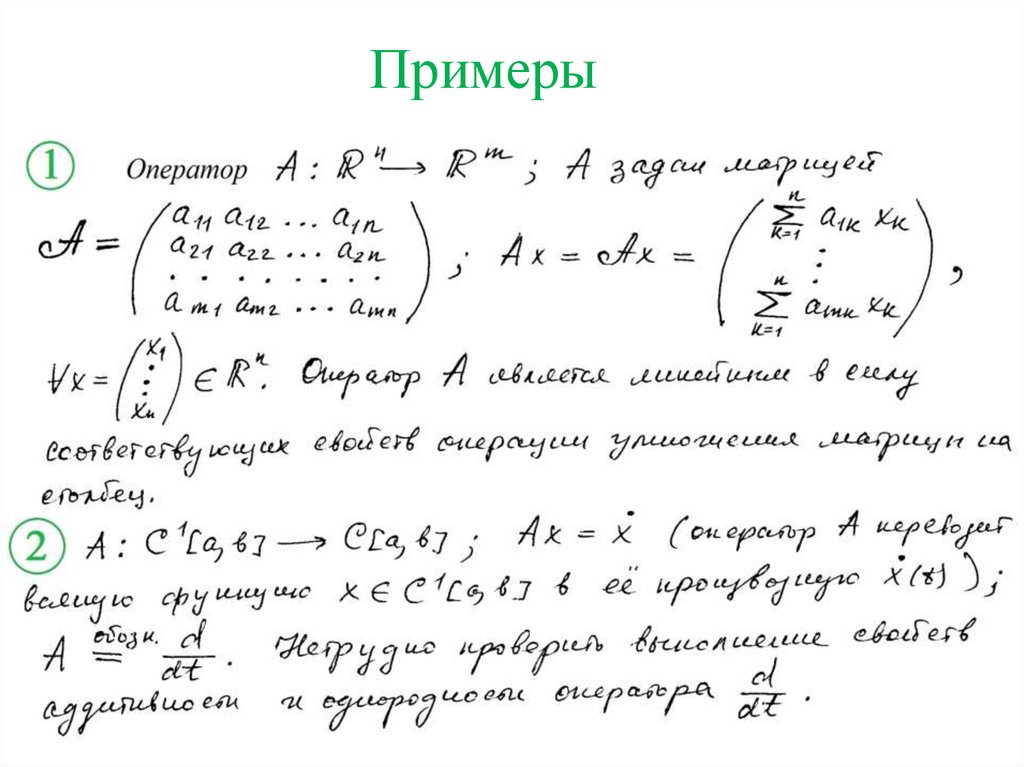 Примеры
1 Оператор A : ℝⁿ → ℝᵐ ; A задан матрицей
𝒜 = ( a₁₁ a₁₂ ... a₁ₙ
a₂₁ a₂₂ ... a₂ₙ
. . . . . . . .
aₘ₁ aₘ₂ ... aₘₙ ) ; Ax = 𝒜x = ( ∑ₖ₌₁ⁿ a₁ₖ xₖ
⋮
∑ₖ₌₁ⁿ aₘₖ xₖ ) ,
∀x = ( x₁ ⋮ xₙ ) ∈ ℝⁿ. Оператор A является линейным в силу
соответствующих свойств операции умножения матрицы на
столбец.
2 A : C¹[a, b] → C[a, b] ; Ax = ẋ (оператор A переводит
всякую функцию x ∈ C¹[a, b] в её производную ẋ(t) ) ;
A обозн. = d/dt . Нетрудно проверить выполнение свойств
аддитивности и однородности оператора d/dt .